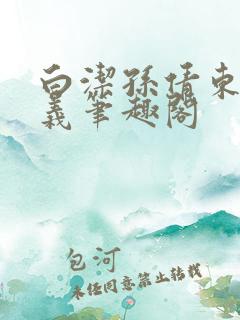 白潔孫倩東
義筆趣閣
包河
未经同意禁止转载